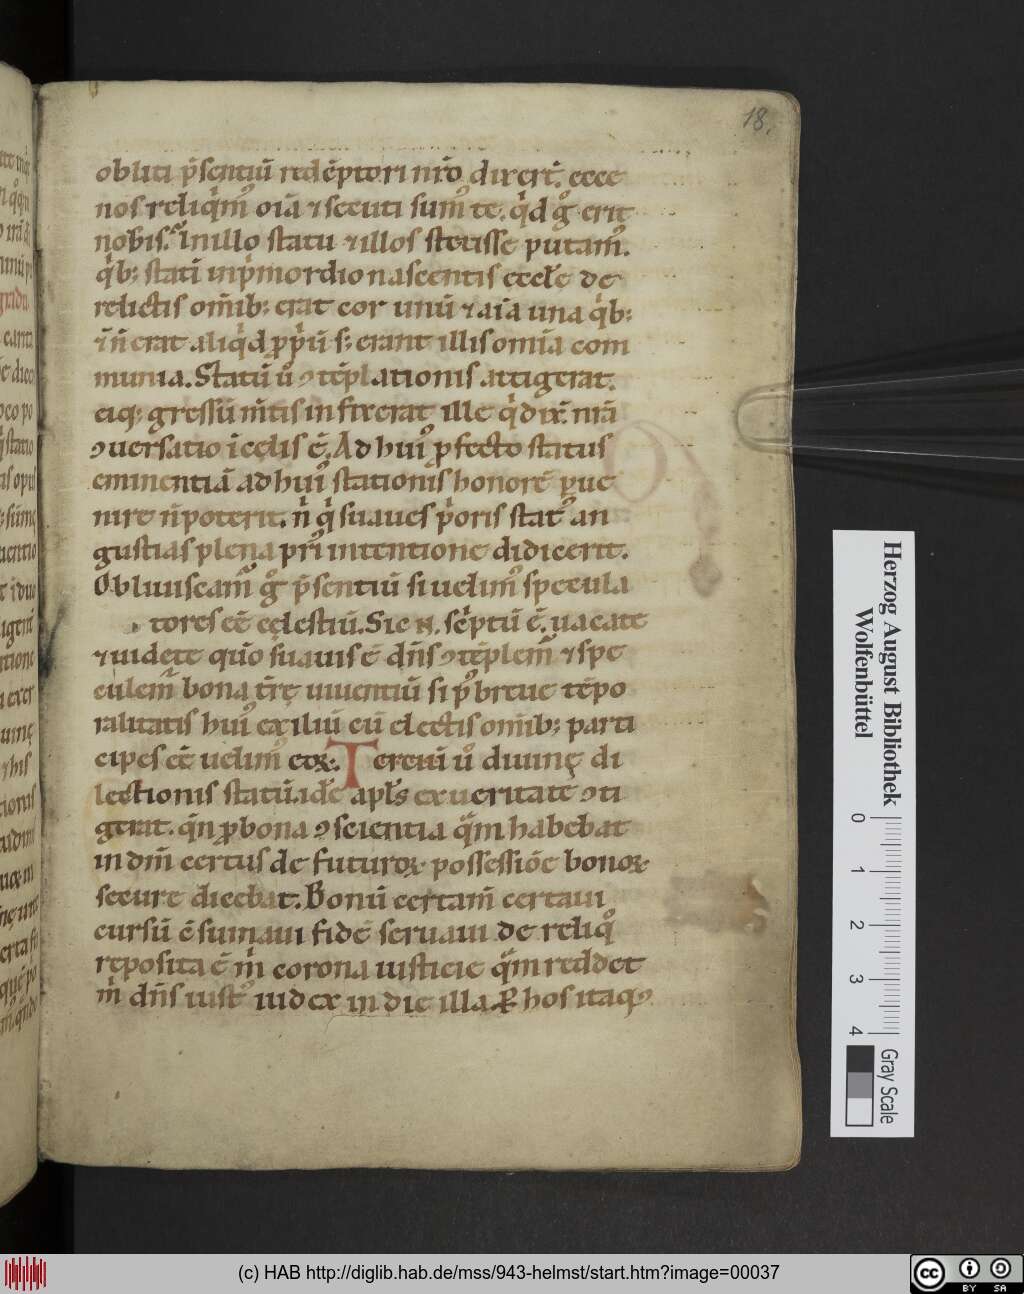 18.
obliti p̄sentiū redēptori nr̄o dixert̄. ecce
nos reliq̇m⁹ oīa ⁊ secuti sum⁹ te. q̇d g̊ erit
nobis. In illo statu ⁊ illos stetisse putam⁹.
q̇b; stati in ṗmordio nascentis eccl̄e de
relictis om̄ib; erat cor unū ⁊ aīa una q̇b;
⁊ n̄ erat aliq̇d ꝓṗū s; erant illis omīa com
munia. Statū ů ꝯtēplationis attigerat.
eiq; gressū m̄tis infixerat ille q̇ dix̄. nr̄a
ꝯuersatio ī cęlis ē. Ad hui⁹ ꝓfecto status
eminentiā ad hui⁹ stationis honorē ꝑue
nire n̄ poterit. n̄ q̇ suaues ṗoris stat⁹ an
gustias plena pri⁹ intentione didicerit.
Obliuiscam̄ g̊ p̄sentiū si uelim⁹ specula
tores eē cęlestiū. Sic .N. sċptū ē. uacate
⁊ uidete qūo suauis ē dn̄s ꝯtēplem̄ ⁊ spe
culem̄ bona tr̄ę uiuentiū si p⁹ breue tēpo
ralitatis hui⁹ exiliū cū electis om̄ib; parti
cipes eē uelim⁹ eoꝝ. Terciū ů diuinę di
lectionis statū. idē apl̄s ex ueritate ꝯti
gerat. qn̄ ꝓ bona ꝯscientia q̄m habebat
in dn̄i certus de futuroꝝ possessiōe bonoꝝ
secure dicebat. Bonū certam̄ certaui
cursū ꝯsumaui fidē seruaui de reliq̊
reposita ē ṁ corona iusticie q̄m reddet
ṁ dn̄s iust⁹ iudex in die illa. Ꝑ hos itaq;
Herzog August Bibliothek
Wolfenbüttel
0 1 2 3 4
Gray Scale
(c) HAB http://diglib.hab.de/mss/943-helmst/start.htm?image=00037
cc BY SA